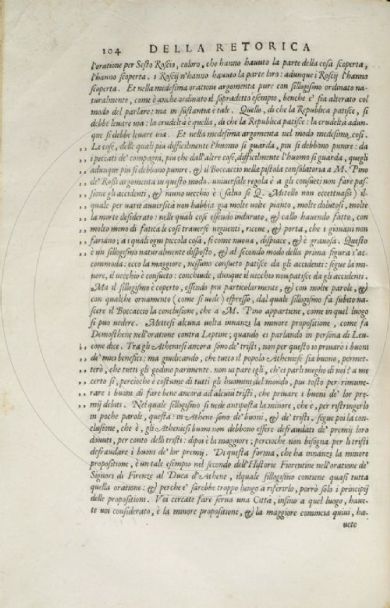 104 DELLA RETORICA
l'oratione per Sesto Roscio, coloro, che hanno hauuto la parte della cosa scoperta,
l'hanno scoperta. i Roscij n'hanno hauuto la parte loro: adunque i Roscij l'hanno
scoperta. Et nella medesima oratione argomenta pure con sillogismo ordinato na-
turalmente, come è anche ordinato il sopradetto esempio, benche e' sia alterato col
modo del parlare: ma in sustantia è tale. Quello, di che la Republica patisce, si
debbe leuare uia: la crudeltà è quella, di che la Republica patisce: la crudeltà adun-
que si debbe leuare uia. Et nella medesima argomenta nel modo medesimo, cosi.
„ Le cose, delle quali piu difficilmente l'huomo si guarda, piu si debbono punire: da
„ i peccati de' compagni, piu che dall'altre cose, difficilmente l'huomo si guarda, quegli
„ adunque piu si debbono punire. & il Boccaccio nella pistola consolatoria a M. Pino
„ de' Rossi argomenta in questo modo. uniuersale regola è a gli consueti non fare pas-
„ sione gli accidenti, & niuno vecchio è (saluo se Q. Metello non eccettuassi) il
„ quale per uarie auuersità non habbia già molte uolte pianto, molte dolutosi, molte
„ la morte desiderato: nelle quali cose essendo indurato, & callo hauendo fatto, con
„ molto meno di fatica le cosi trauersi uegnenti, riceue, & porta, che i giouani non
„ fariano; a i quali ogni piccola cosa, si come nuoua, dispiace, & è grauosa. Questo
è un sillogismo naturalmente disposto, & al secondo modo della prima figura s'ac-
commoda: ecco la maggiore, nessuno consueto patisce da gli accidenti: segue la mi-
nore, il uecchio è consueto: conchiude, dunque il uecchio non patisce da gli accidenti.
Ma il sillogismo è coperto, essendo piu particolarmente, & con molte parole, &
con qualche ornamento (come si uede) espresso, dal quale sillogismo fa subito na-
scere il Boccaccio la conclusione, che a M. Pino appartiene, come in quel luogo
si puo uedere. Mettesi alcuna uolta innanzi la minore propositione, come fa
Demosthene nell'oratione contra Leptine; quando ei parlando in persona di Leu-
„ cone dice. Tra gli Atheniesi ancora sono de' tristi, non per questo io prouarei i buoni
„ de' miei benefici: ma giudicando, che tutto il popolo Atheniese sia buono, permet-
„ terò, che tutti gli godino parimente. non ui par egli, ch'ei parli meglio di noi? a me
„ certo si, percioche è costume di tutti gli huomini del mondo, piu tosto per rimune-
„ rare i buoni di fare bene ancora ad alcuni tristi, che priuare i buoni de' lor pre-
„ mij debiti. Nel quale sillogismo si uede anteposta la minore, che è, per ristringerlo
in poche parole, questa: in Athene sono de' buoni, & de' tristi. segue poi la con-
clusione, che è, gli Atheniesi buoni non debbono essere defraudati de' premij loro
douuti, per conto delli tristi: dipoi è la maggiore; percioche non bisogna per li tristi
defraudare i buoni de' lor premij. Di questa forma, che ha innanzi la minore
propositione, è un tale esempio nel secondo dell'Historie Fiorentine nell'oratione de'
Signori di Firenze al Duca d'Athene, il quale sillogismo contiene quasi tutta
quella oratione: & perche e' sarebbe troppo lungo a riferirlo, porrò solo i principij
delle propositioni. Voi cercate fare serua una Città, insino a quel luogo, haue-
te uoi considerato, è la minore propositione, & la maggiore comincia quiui, ha-
uete